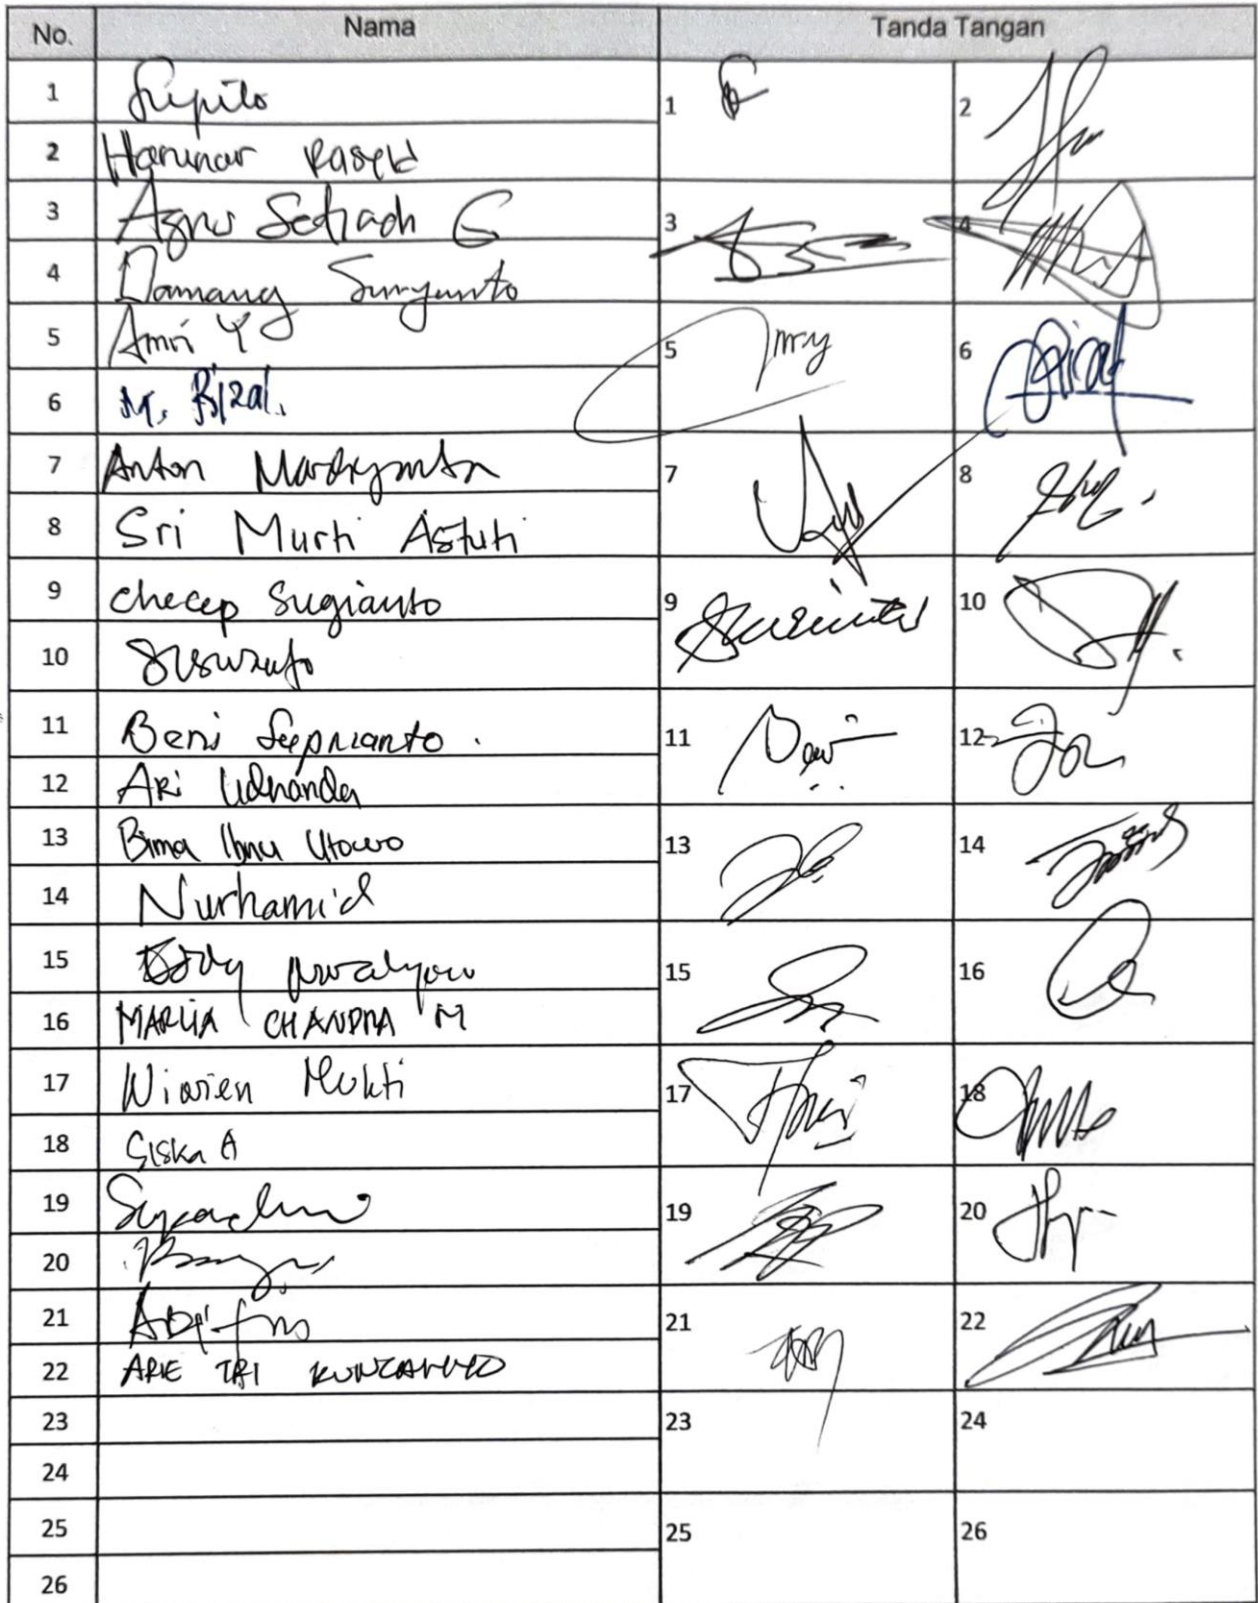 No. Nama Tanda Tangan
1 Supito 1 2
2 Harunar Rasyid
3 Agus Setiadi G 3 4
4 Damang Suryanto
5 Amri Y 5 6
6 M. Rizal.
7 Anton 7 8
8 Sri Murti Astuti
9 Checep Sugianto 9 10
10 Siswanto
11 Beni Suprianto. 11 12
12 Ari
13 Bima Ibnu Utowo 13 14
14 Nurhamid
15 15 16
16 MARLIA CHANDRA M
17 Wiwien Mukti 17 18
18 Siska A
19 19 20
20
21 21 22
22 ARIE TRI KUNCAHYO
23 23 24
24
25 25 26
26